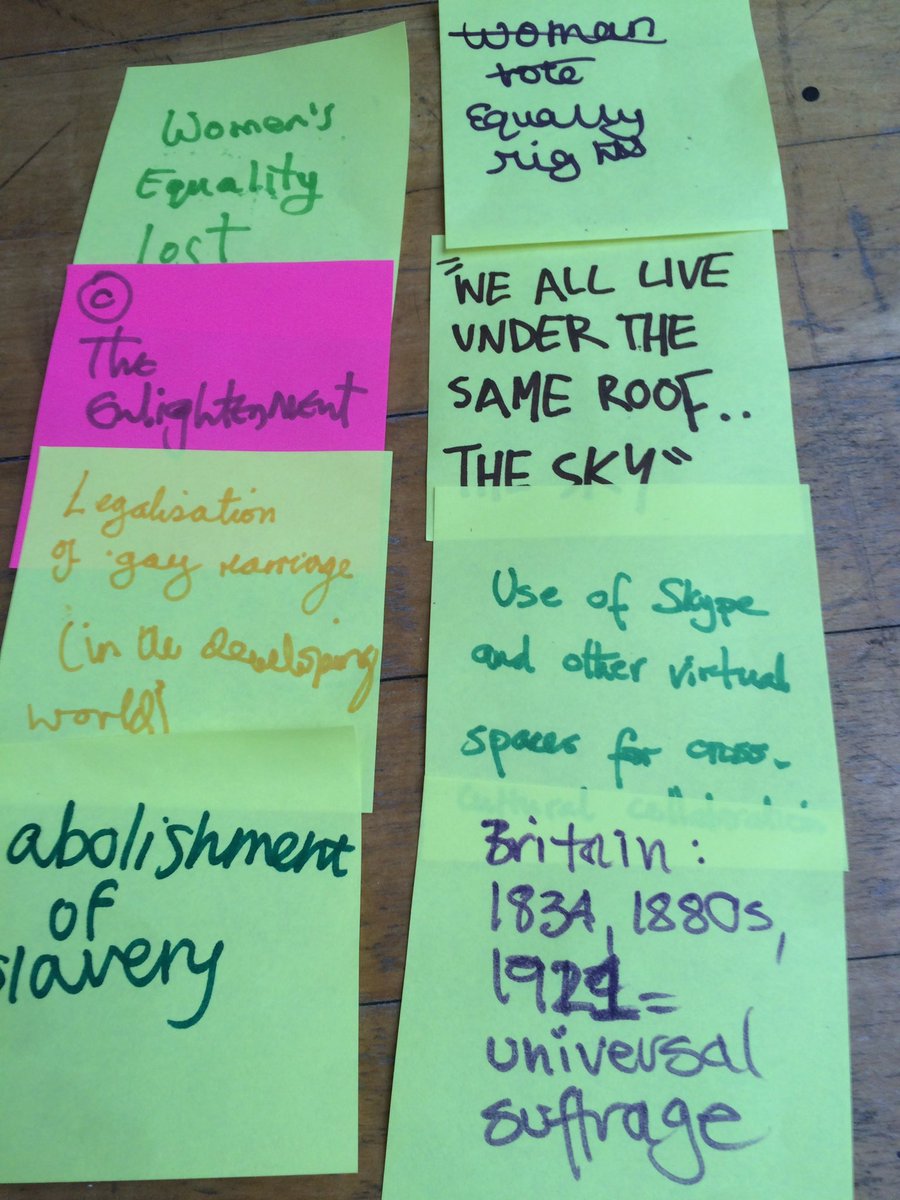 Women's
Equality
lost
©
The
Enlightenment
Legalisation
of gay marriage
(in the developing
world)
abolishment
of
slavery
woman
vote
Equally
rights
"WE ALL LIVE
UNDER THE
SAME ROOF..
THE SKY"
Use of Skype
and other virtual
spaces for cross-
cultural collaboration
Britain:
1834, 1880s,
1921=
universal
suffrage